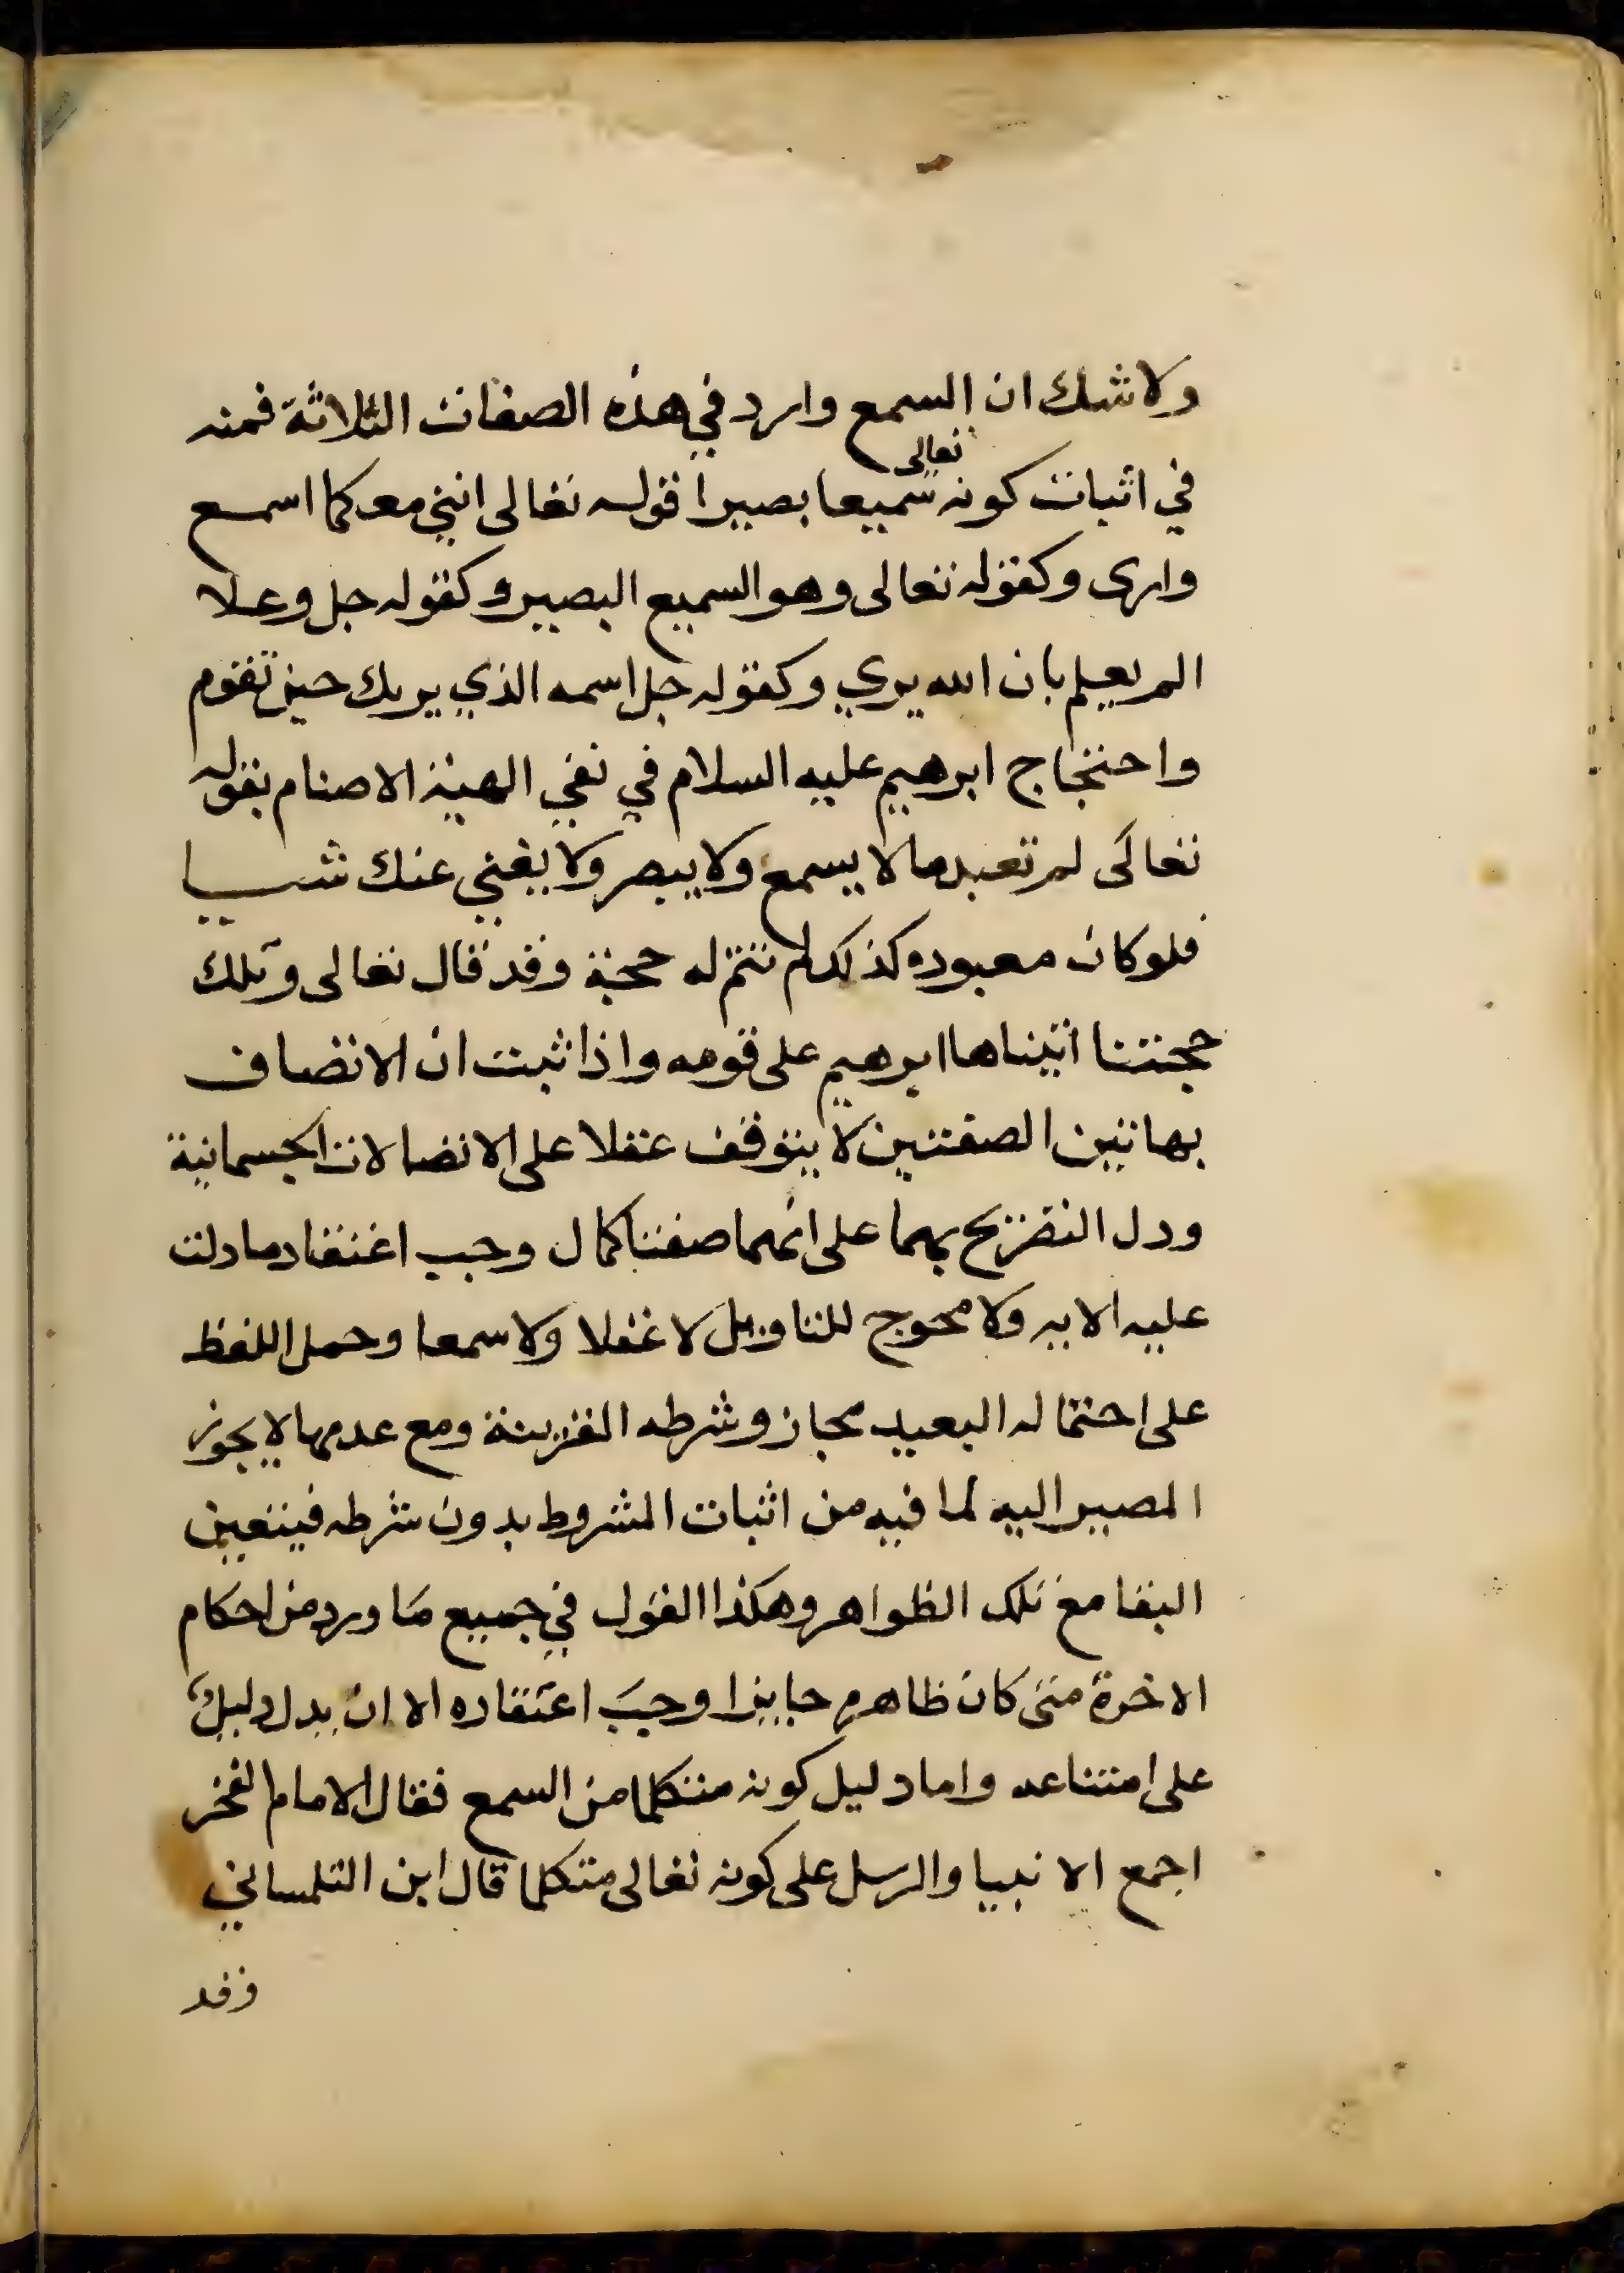 ولا شك ان السمع وارد في هذه الصفات الثلاثة فمنه
في اثبات كونه تعالى سميعا بصيرا قوله تعالى انني معكما اسمع
وارى وكقوله تعالى وهو السميع البصير وكقوله جل وعلا
الم يعلم بان الله يري وكقوله جل اسمه الذي يريك حين تقوم
واحتجاج ابرهيم عليه السلام في نفي الهية الاصنام بقوله
تعالى لم تعبد ما لا يسمع ولا يبصر ولا يغني عنك شيا
فلو كان معبوده كذلك لم تتم له حجة وقد قال تعالى وتلك
حجتنا اتيناها ابرهيم على قومه واذا ثبت ان الاتصاف
بهاتين الصفتين لا يتوقف عقلا على الاتصالات الجسمانية
ودل التصريح بهما على انهما صفتا كمال وجب اعتقاد ما دلت
عليه الايه ولا محوج للتاويل لا عقلا ولا سمعا وحمل اللفظ
على احتماله البعيد مجاز وشرطه القرينة ومع عدمها لا يجوز
المصير اليه لما فيه من اثبات المشروط بدون شرطه فيتعين
البقا مع تلك الظواهر وهكذا القول في جميع ما ورد من احكام
الاخرة متى كان ظاهره جايزا وجب اعتقاده الا ان يدل دليل
على امتناعه واما دليل كونه متكلما من السمع فقال الامام الفخر
اجمع الانبيا والرسل على كونه تعالى متكلما قال ابن التلمساني
وقد